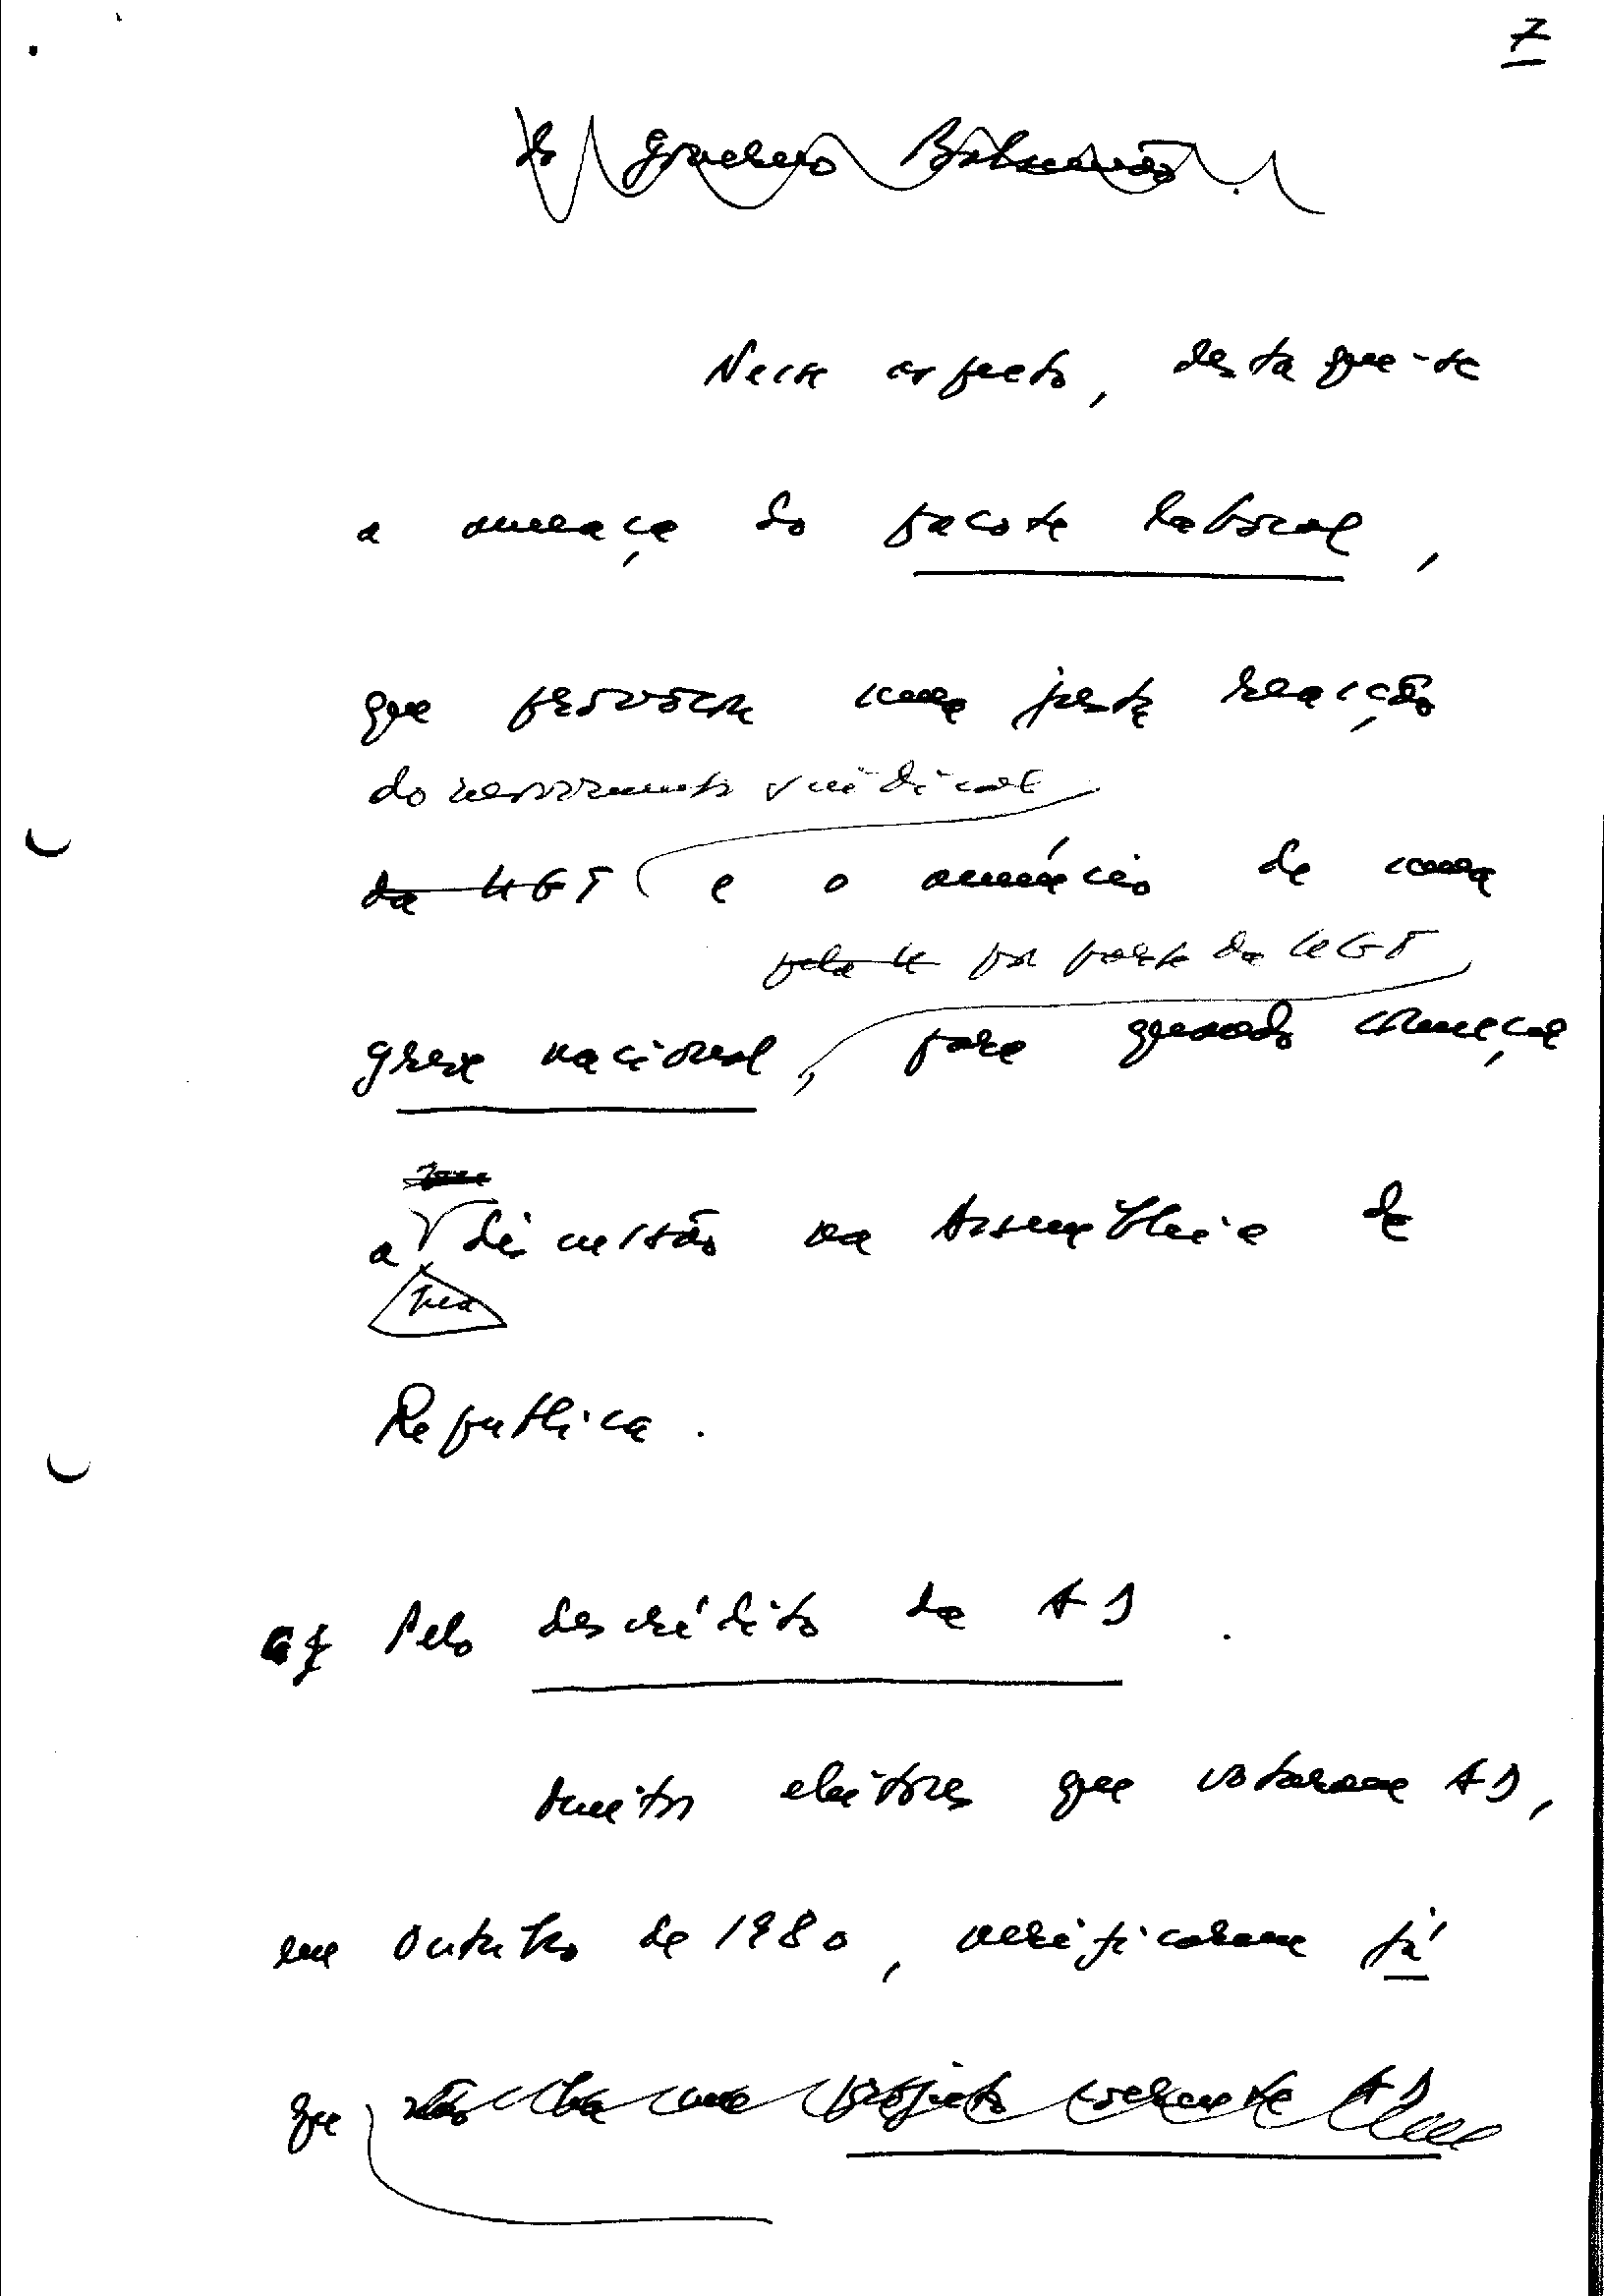 7
do Governo Balsemão.
Neste aspecto, destaque-se
a ameaça do pacote laboral,
que provoca uma justa reacção
do movimento sindical
da UGT e o anúncio de uma
pela U por parte da UGT
greve nacional, para quando começar
a discussão na Assembleia da
sua
República.
Pelo descrédito da AD.
Muitos eleitores que votaram AD,
em Outubro de 1980, verificaram já
que não há um projecto coerente AD